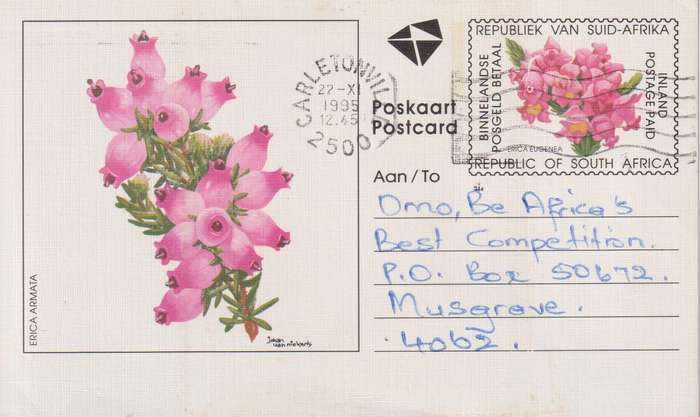 ERICA ARMATA
Johan
van niekerk
CARLETONVIL
22-XI
1995
12.45
2500
Poskaart
Postcard
REPUBLIEK VAN SUID-AFRIKA
BINNELANDSE
POSGELD BETAAL
INLAND
POSTAGE PAID
ERICA EUGENEA
REPUBLIC OF SOUTH AFRICA
Aan / To
Omo, Be Africa's
Best Competition.
P.O. Box 50672.
Musgrave.
4062.